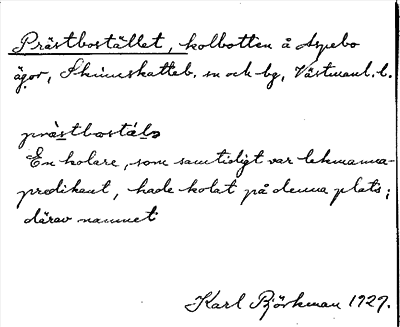 Prästbostället, kolbotten å Aspebo
ägor, Skinnskatteb. sn och bg, Västmanl. l.
prästbostälə
En kolare, som samtidigt var lekmanna-
predikant, hade kolat på denna plats;
därav namnet
Karl Björkman 1927.